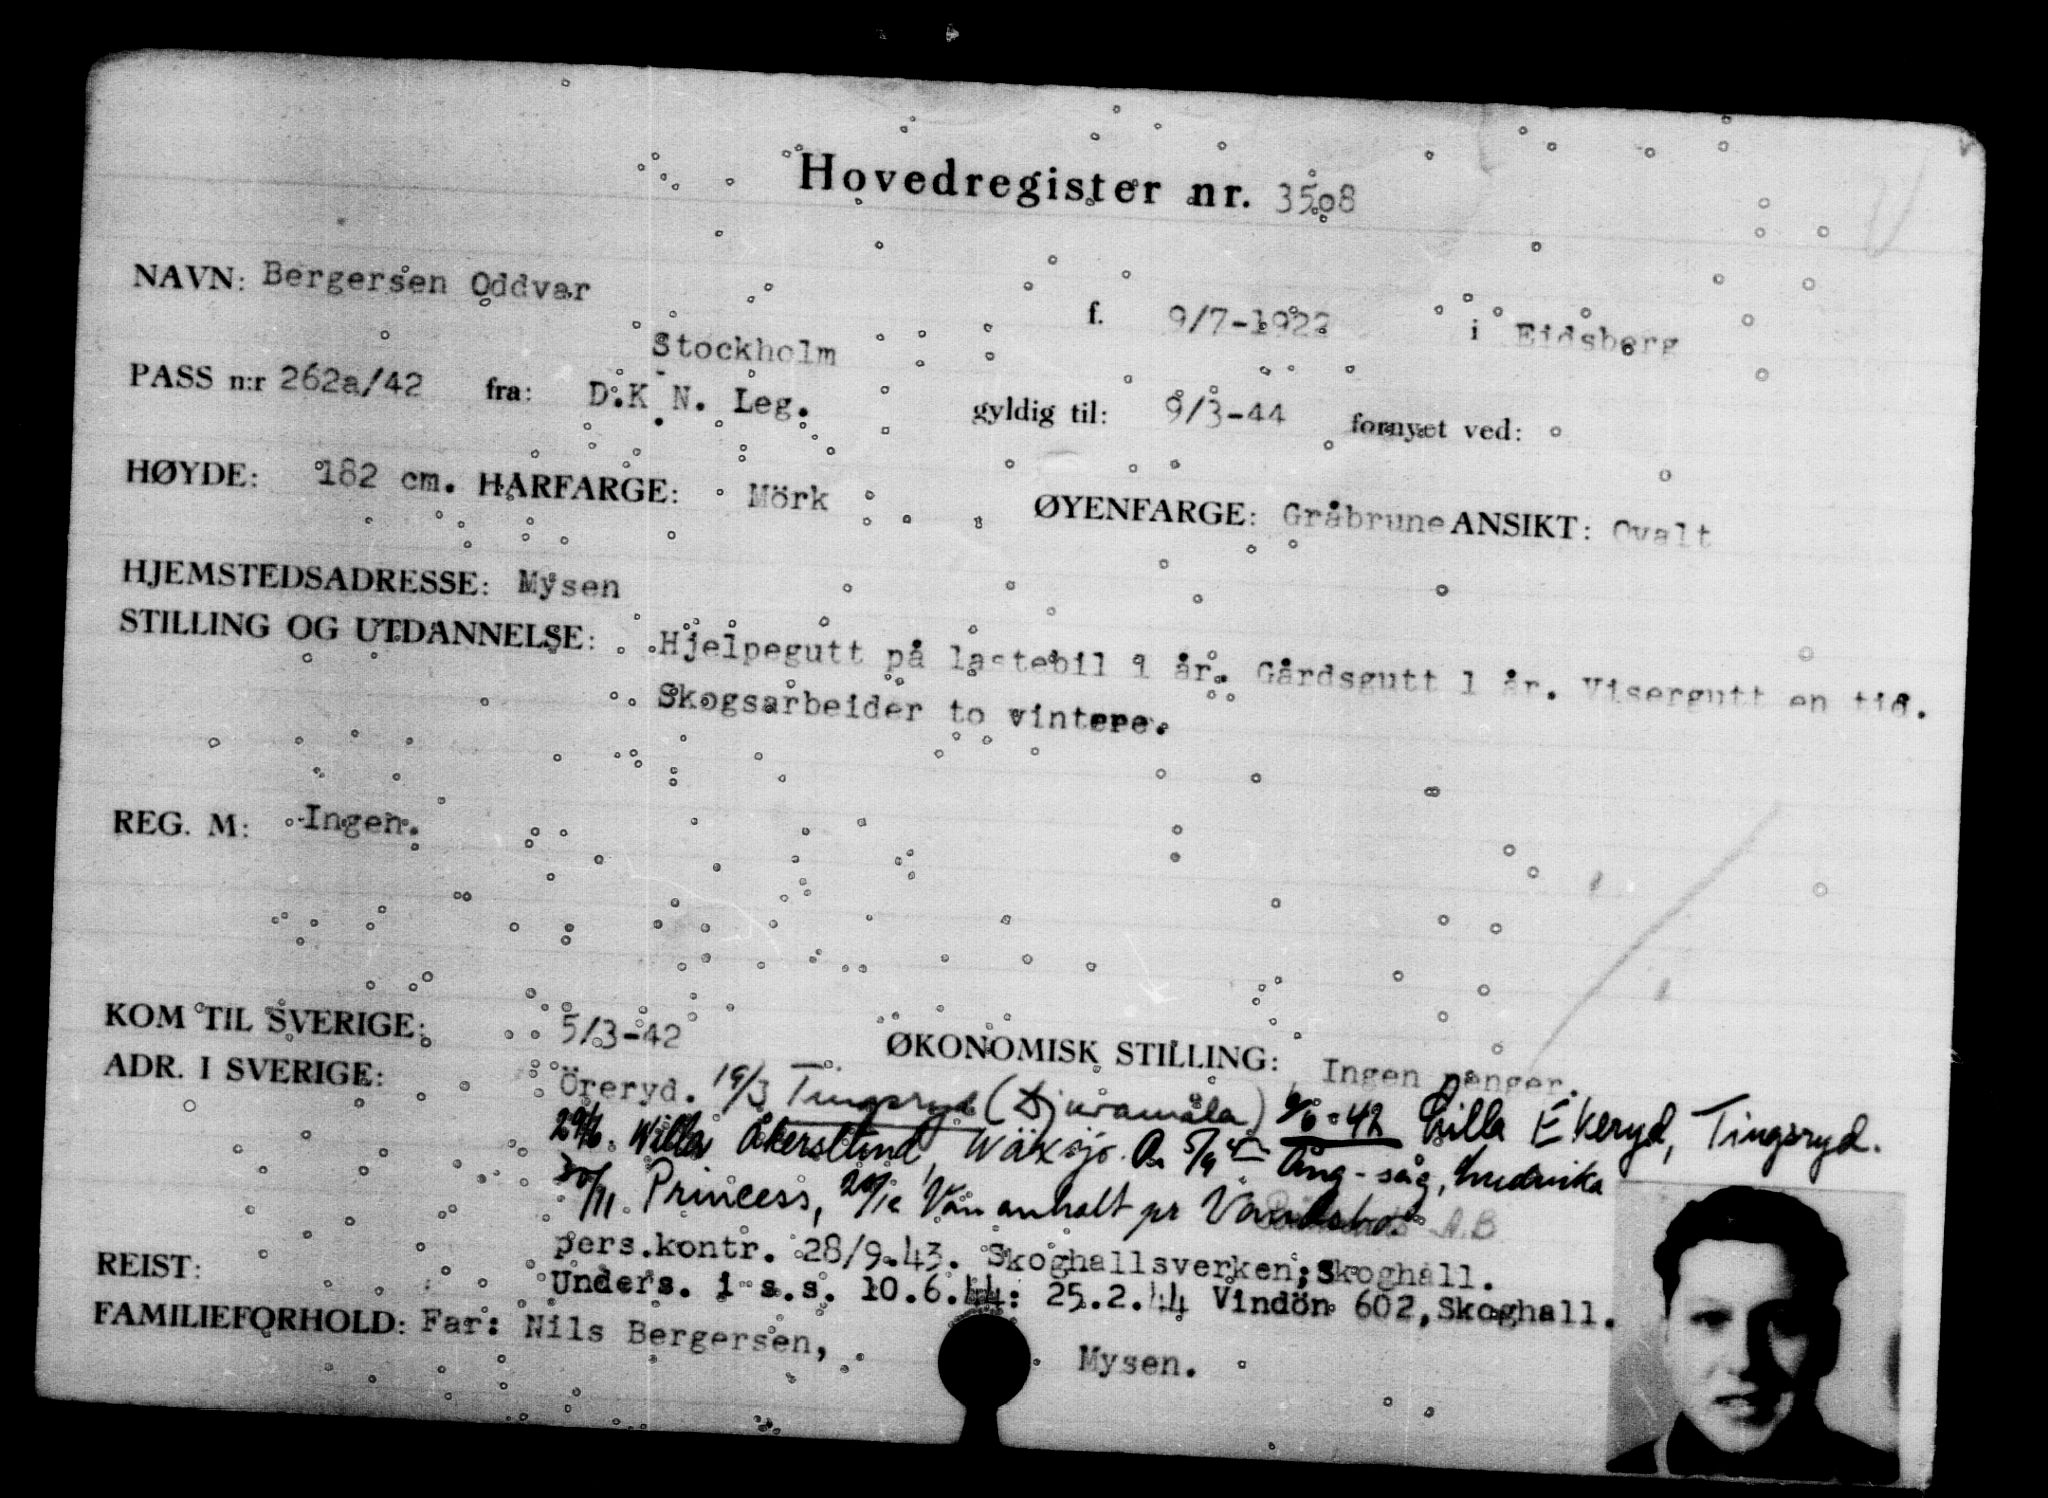 Hovedregister nr. 3508
NAVN: Bergersen Oddvar f. 9/7-1922 i Eidsberg
Stockholm
PASS n:r 262a/42 fra: D.K N. Leg. gyldig til: 9/3-44 fornyet ved:
HØYDE: 182 cm. HARFARGE: Mörk ØYENFARGE: Gråbrune ANSIKT: Ovalt
HJEMSTEDSADRESSE: Mysen
STILLING OG UTDANNELSE: Hjelpegutt på lastebil 1 år. Gårdsgutt 1 år. Visergutt en tid.
Skogsarbeider to vintere.
REG. M: Ingen.
KOM TIL SVERIGE: 5/3-42 ØKONOMISK STILLING: Ingen penger.
ADR. I SVERIGE: Öreryd. 19/3 Tingsryd (Djuramåla) 9/6-42 Lilla Ekeryd, Tingsryd.
Villa Åkerslund, Wäxsjö. 5/9 Ång-såg,
30/11 Princess, pr A.B
pers.kontr. 28/9.43. Skoghallsverken; Skoghall.
REIST: Unders. i s.s. 10.6.44: 25.2.44 Vindön 602, Skoghall.
FAMILIEFORHOLD: Far: Nils Bergersen, Mysen.